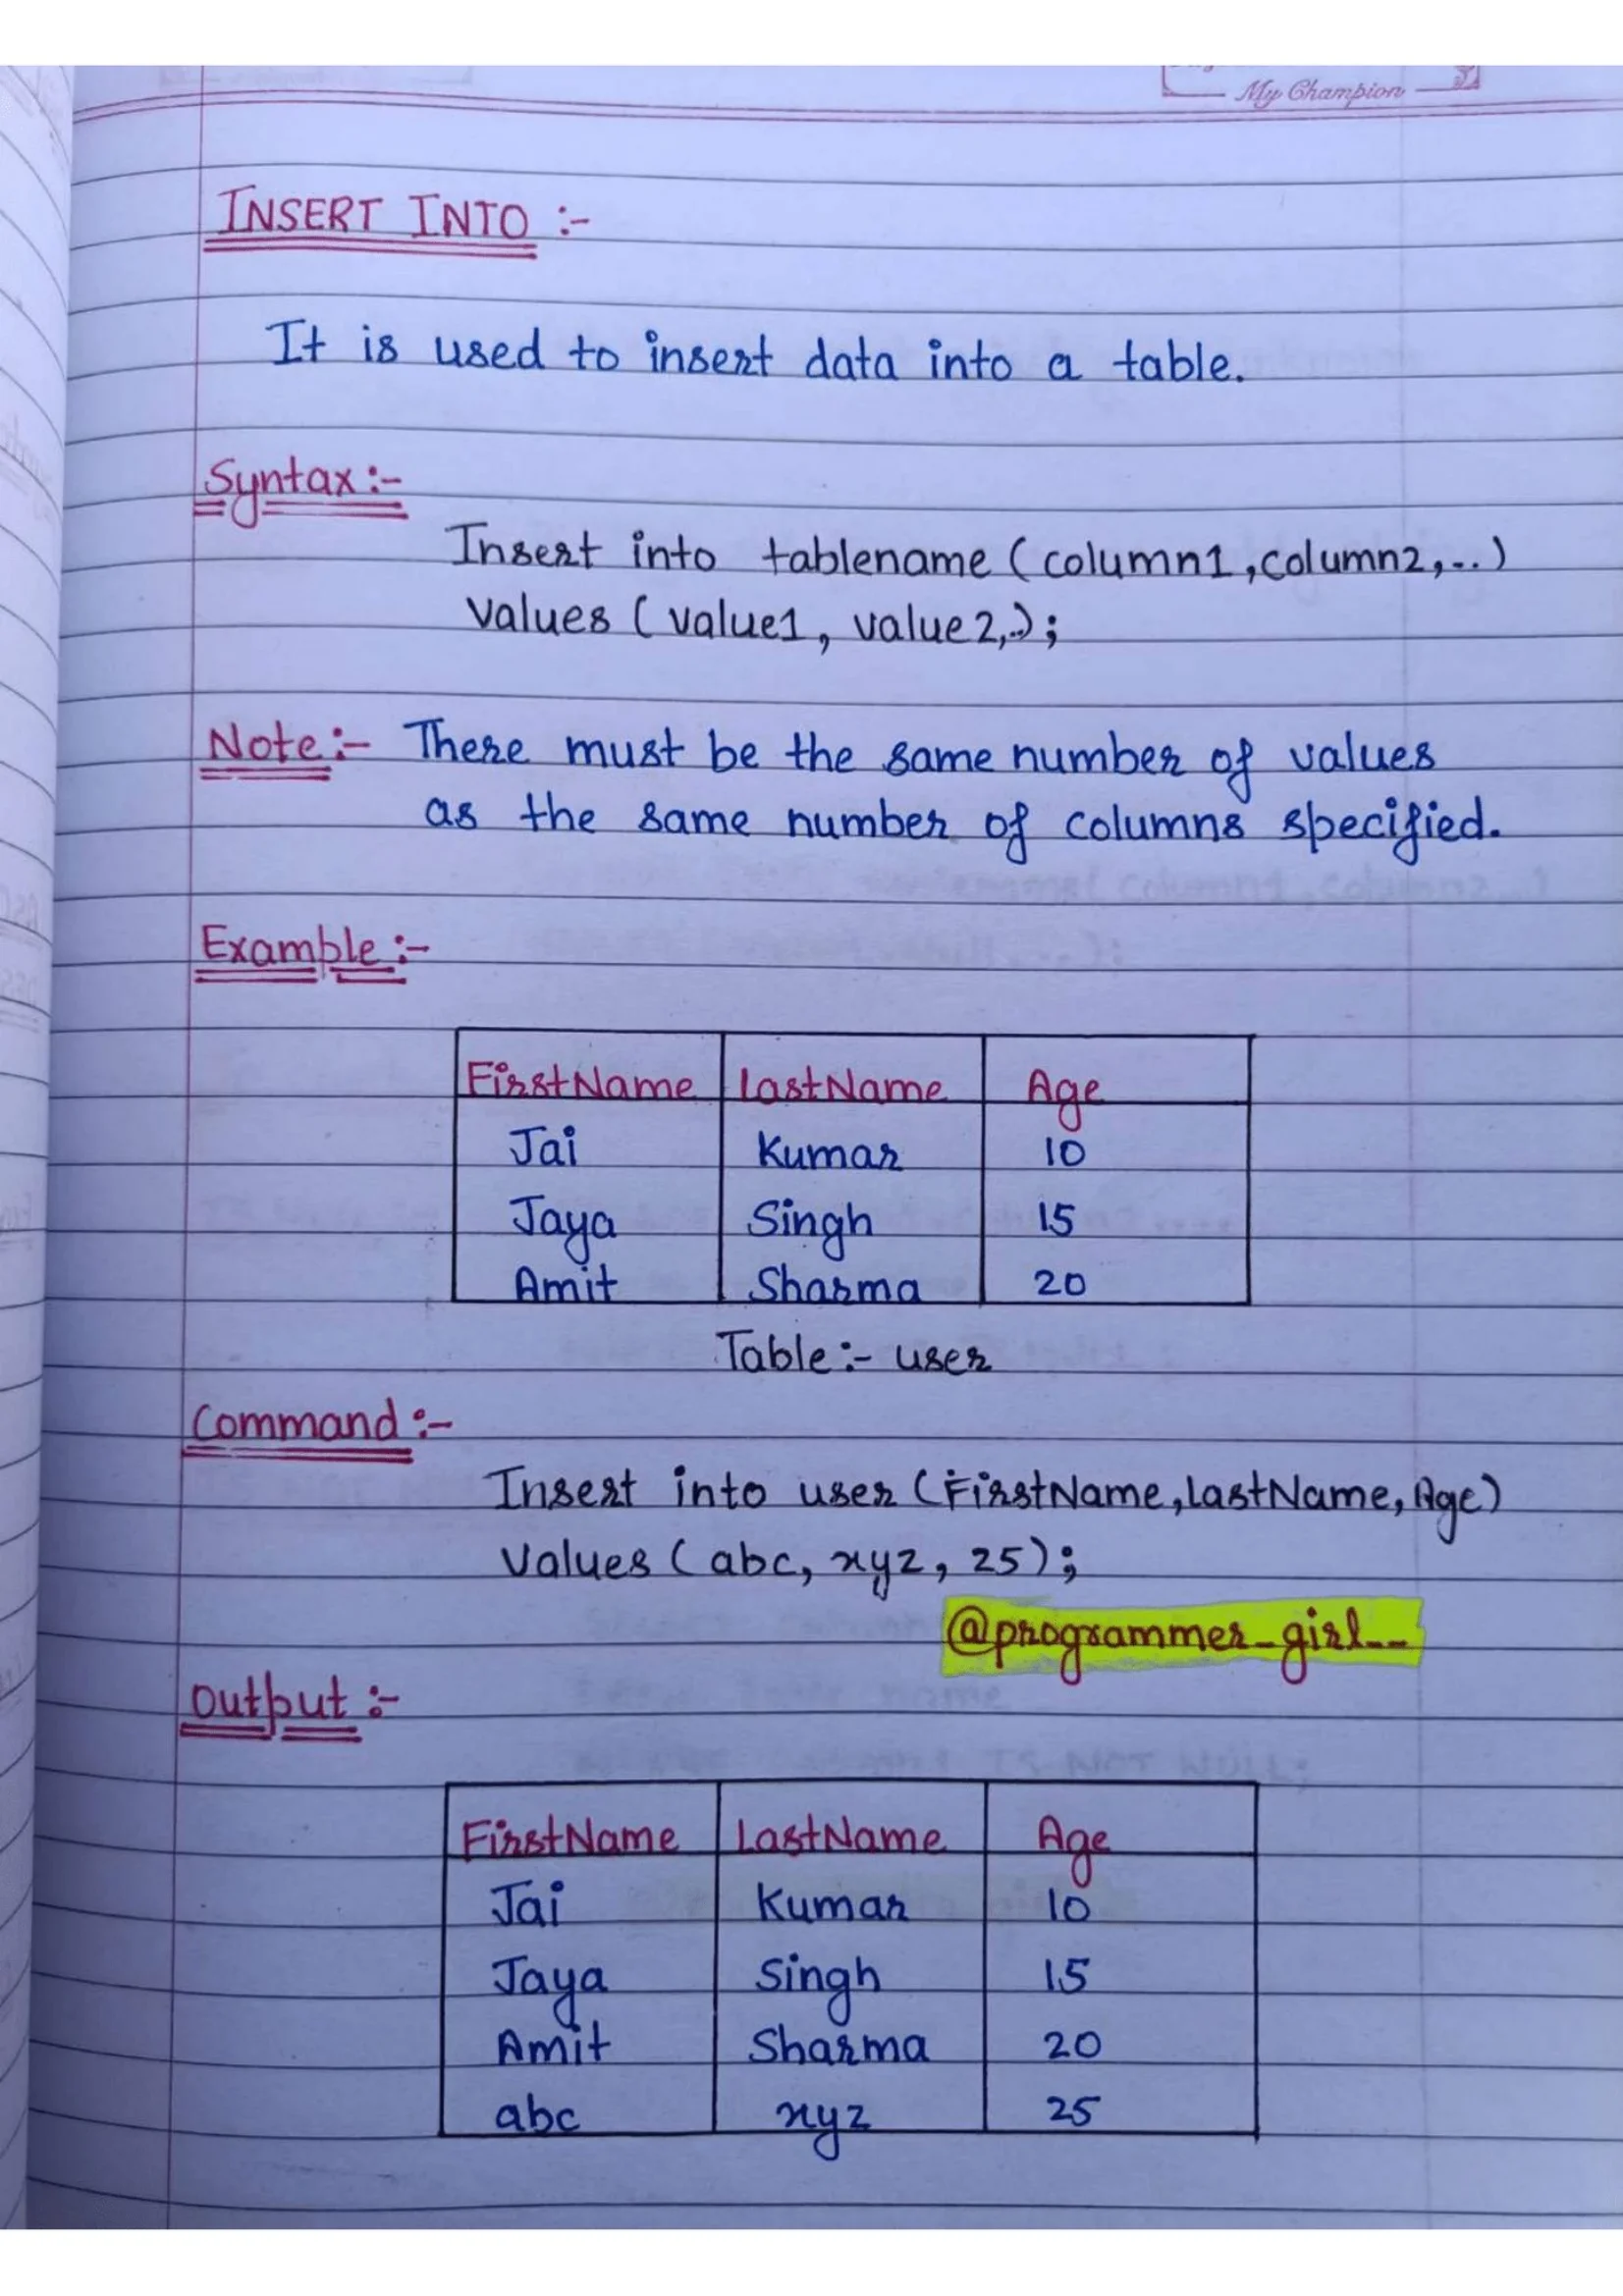 My Champion
INSERT INTO :-
It is used to insert data into a table.
Syntax :-
Insert into tablename (column1,column2,..)
values (value1, value2,..);
Note :- There must be the same number of values
as the same number of columns specified.
Example :-
FirstName LastName Age
Jai Kumar 10
Jaya Singh 15
Amit Sharma 20
Table :- user
Command :-
Insert into user (FirstName,LastName, Age)
Values (abc, xyz, 25);
@programmer_girl__
Output :-
FirstName LastName Age
Jai Kumar 10
Jaya Singh 15
Amit Sharma 20
abc xyz 25